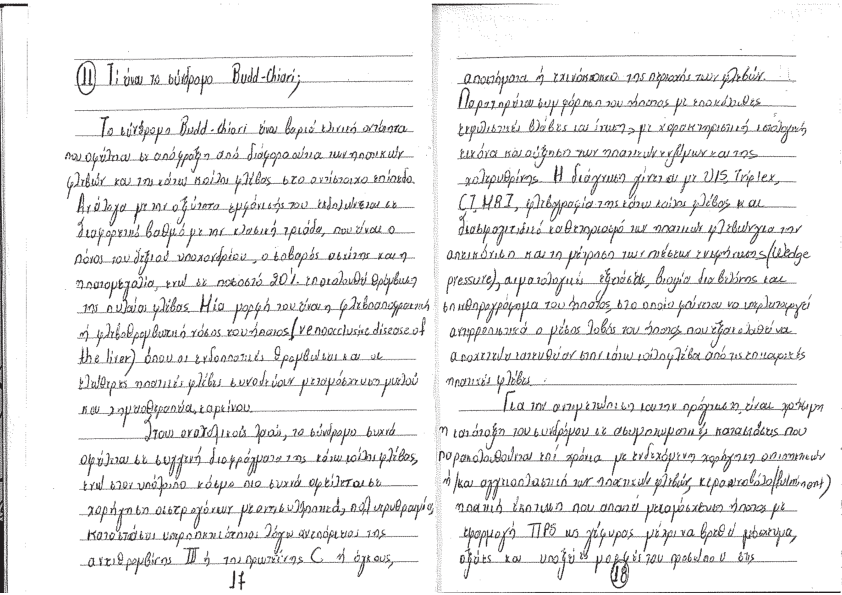 11 Τί είναι το σύνδρομο Budd-Chiari;
Το σύνδρομο Budd-chiari είναι βαριά κλινική οντότητα
που οφείλεται σε απόφραξη από διάφορα αίτια των ηπατικών
φλεβών και της κάτω κοίλης φλέβας στο αντίστοιχο επίπεδο.
Ανάλογα με την οξύτητα εμφάνισής του εκδηλώνεται σε
διαφορετικό βαθμό με την κλασική τριάδα, που είναι ο
πόνος του δεξιού υποχονδρίου, ο σοβαρός ασκίτης και η
ηπατομεγαλία, ενώ σε ποσοστό 20% επακολουθεί θρόμβωση
της πυλαίας φλέβας. Μία μορφή του είναι η φλεβοαποφρακτική
ή φλεβοθρομβωτική νόσος του ήπατος (venoocclusive disease of
the liver) όπου οι ενδοηπατικές θρομβώσεις και οι
ελεύθερες ηπατικές φλέβες συνοδεύουν μεταμόσχευση μυελού
και χημειοθεραπεία καρκίνου.
Στους ανατολικούς λαούς, το σύνδρομο συχνά
οφείλεται σε συγγενή διαφράγματα της κάτω κοίλης φλέβας,
ενώ στον υπόλοιπο κόσμο πιο συχνά οφείλεται σε
χορήγηση οιστρογόνων με αντισυλληπτικά, πολυερυθραιμία,
καταστάσεις υπερπηκτικότητας λόγω ανεπάρκειας της
αντιθρομβίνης III ή της πρωτεΐνης C ή όγκους,
17
αποστήματα ή εχινόκοκκο της περιοχής των φλεβών.
Παρατηρείται συμφόρηση του ήπατος με επακόλουθες
εκφυλιστικές βλάβες και ίνωση, με χαρακτηριστική ιστολογική
εικόνα και αύξηση των ηπατικών ενζύμων και της
χολερυθρίνης. Η διάγνωση γίνεται με U/S, Triplex,
CT, MRI, φλεβογραφία της κάτω κοίλης φλέβας και
διασφαγιτιδικό καθετηριασμό των ηπατικών φλεβών για την
απεικόνιση και τη μέτρηση των πιέσεων ενσφήνωσης (Wedge
pressure), αιματολογικές εξετάσεις, βιοψία δια βελόνης και
σπινθηρογράφημα του ήπατος, στο οποίο φαίνεται να υπερλειτουργεί
αντιρροπιστικά ο μέσος λοβός του ήπατος που εξακολουθεί να
αποχετεύεται κατευθείαν στην κάτω κοίλη φλέβα από τις επικουρικές
ηπατικές φλέβες.
Για την αντιμετώπιση και την πρόγνωση, είναι χρήσιμη
η κατάταξη του συνδρόμου σε ασυμπτωματικές καταστάσεις που
παρακολουθούνται επί χρόνια με ενδεχόμενη χορήγηση
ή/και αγγειοπλαστική των ηπατικών φλεβών, κεραυνοβόλο (fulminent)
ηπατική έκπτωση που απαιτεί μεταμόσχευση ήπατος με
εφαρμογή TIPS ως γέφυρας μέχρι να βρεθεί μόσχευμα,
οξείες και υποξείες μορφές του
18